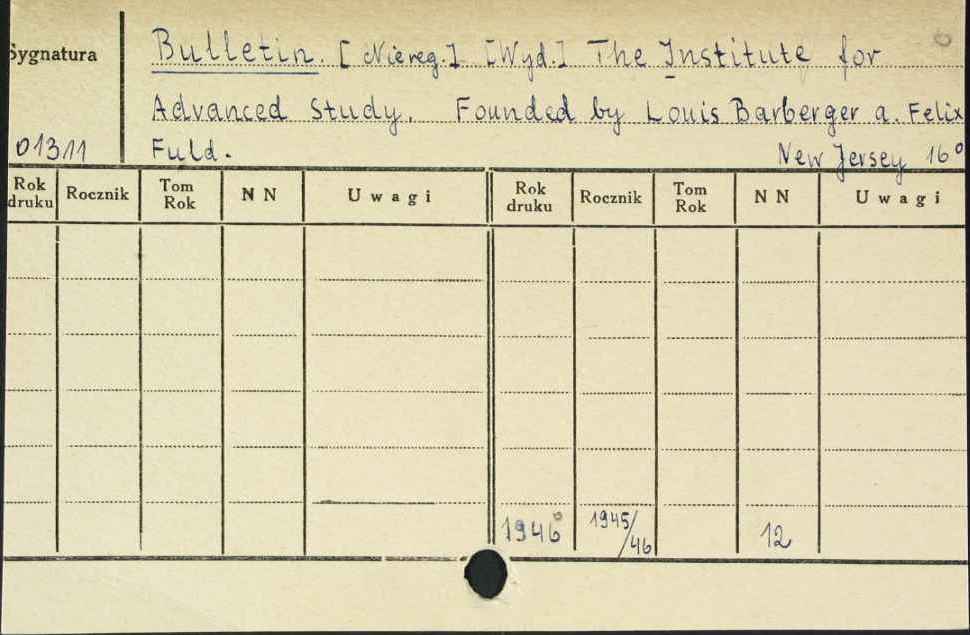 Sygnatura
Bulletin. [Niereg.] [Wyd.] The Institute for
Advanced Study. Founded by Louis Barberger a. Felix
01311 Fuld. New Jersey 16°
Rok druku Rocznik Tom Rok NN Uwagi Rok druku Rocznik Tom Rok NN Uwagi
1946 1945/46 12